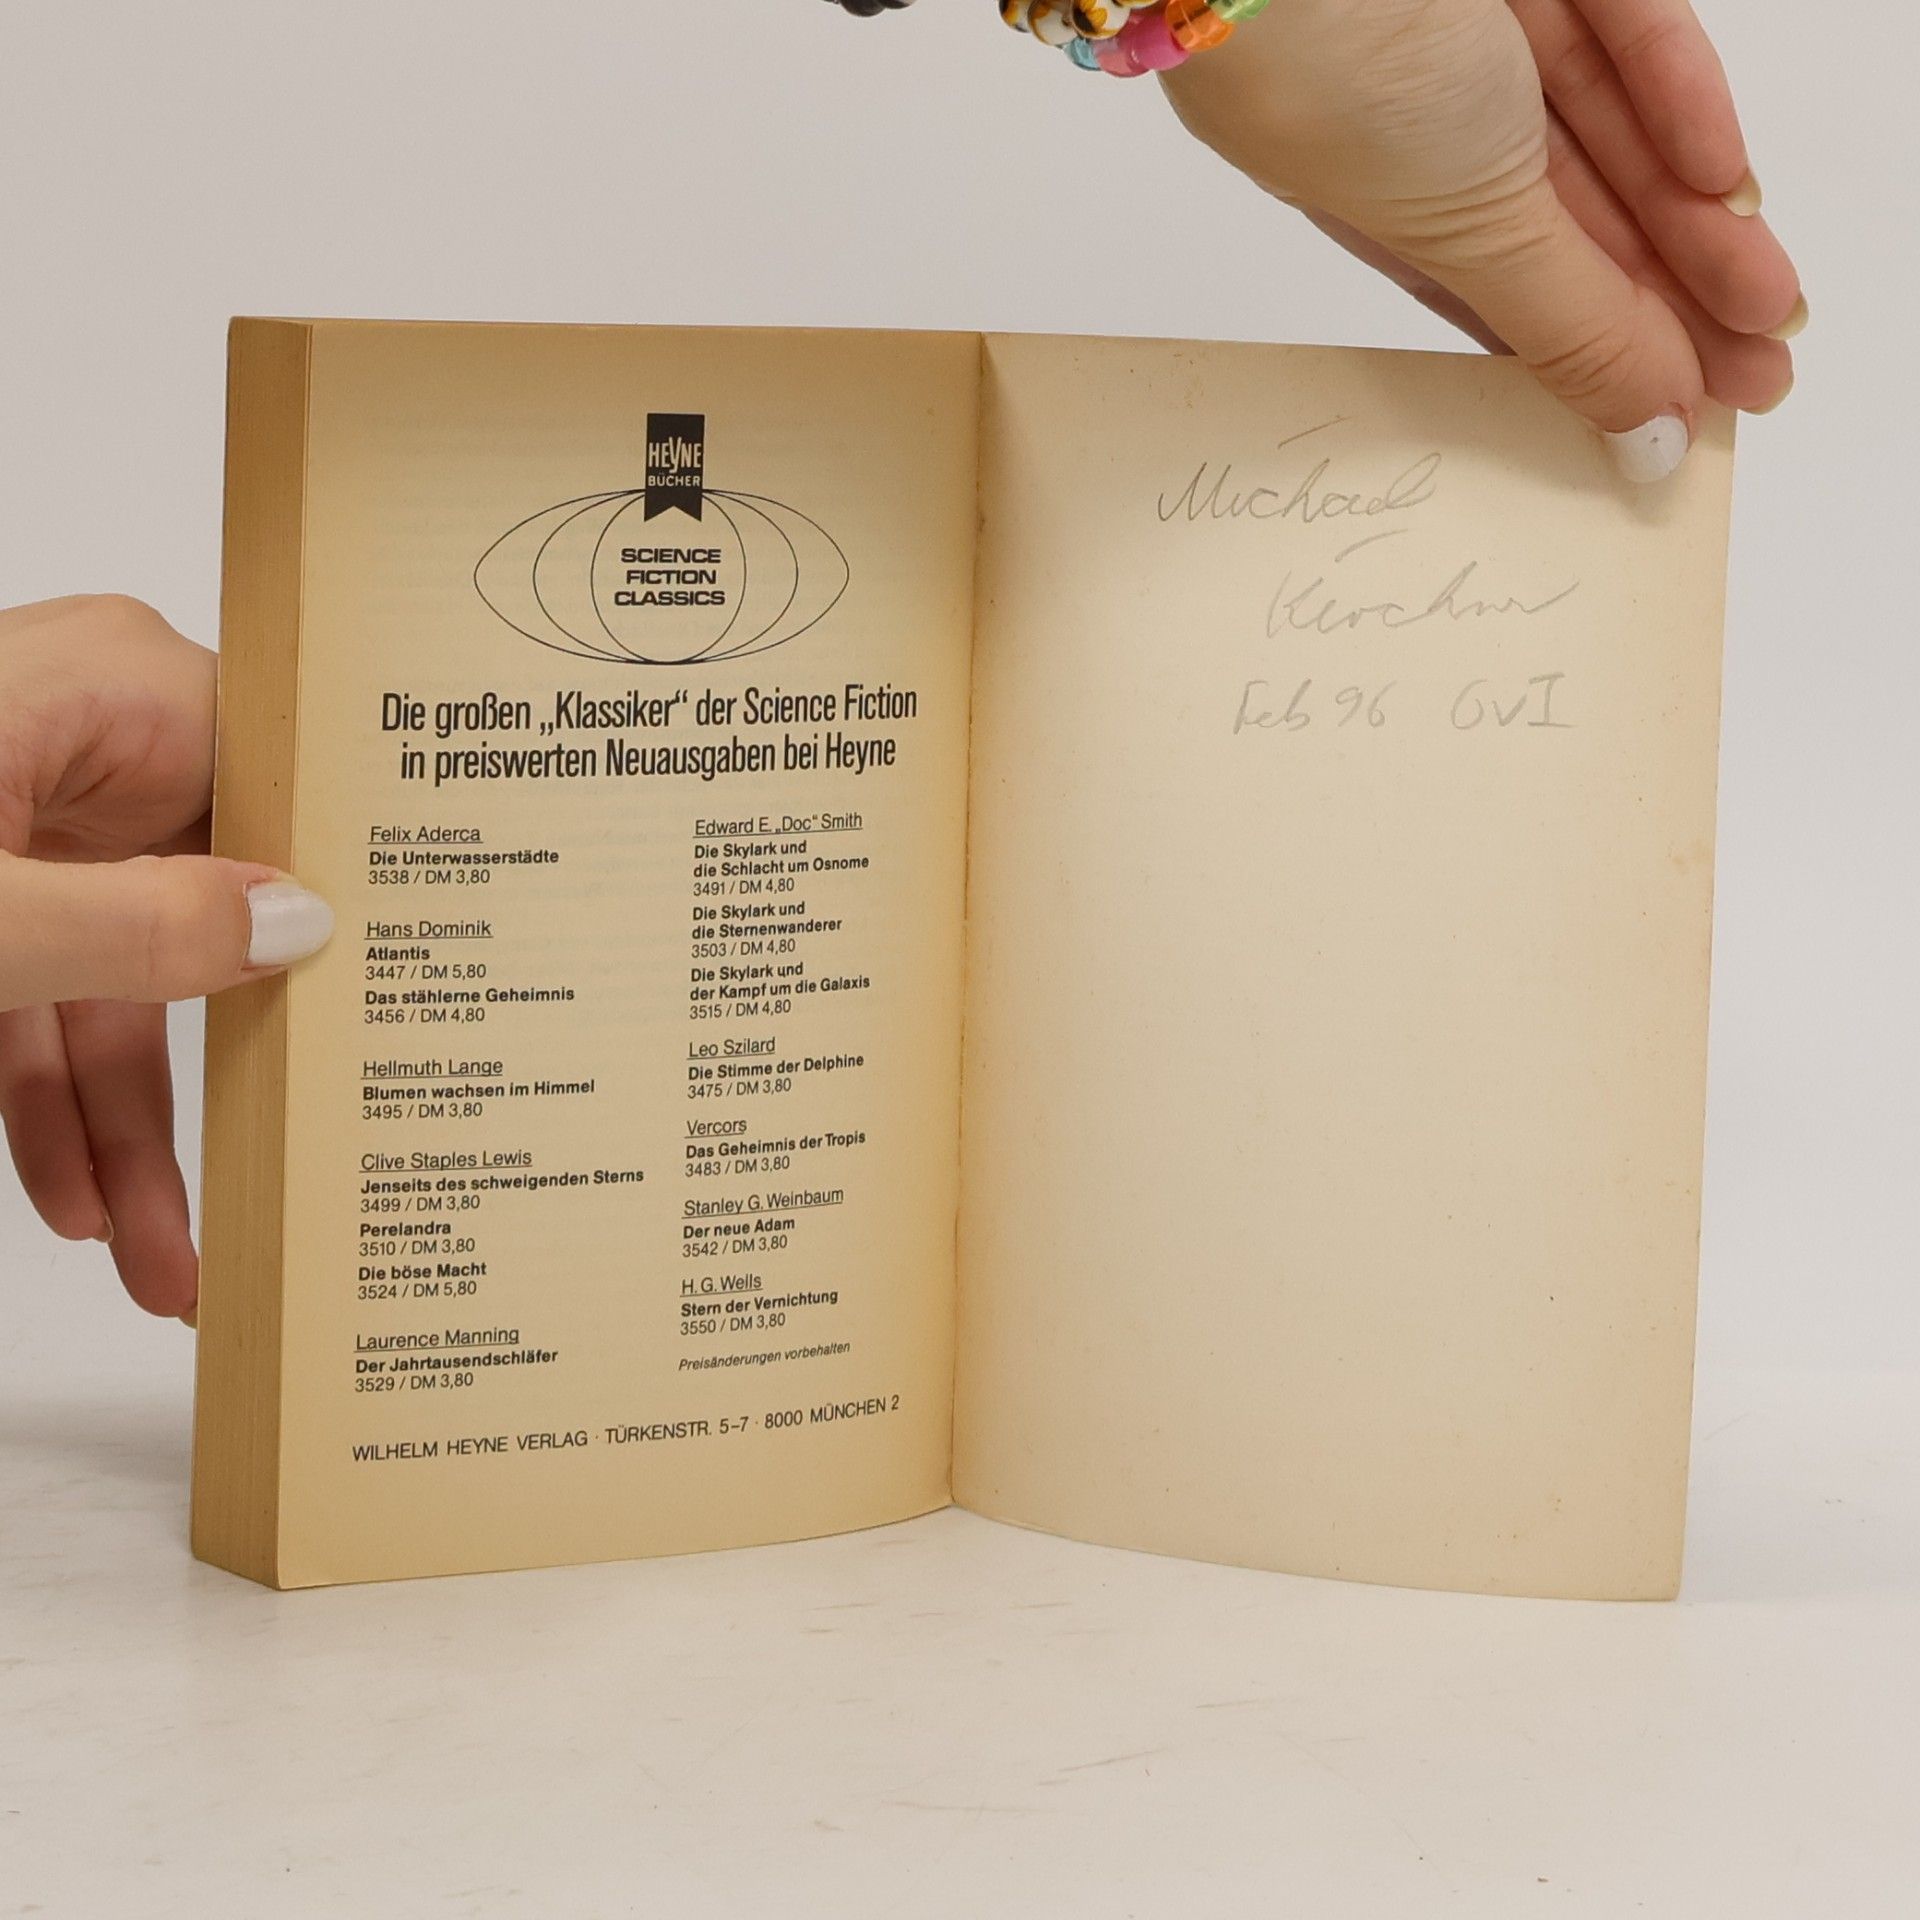 HEYNE
BÜCHER
SCIENCE
FICTION
CLASSICS
Die großen „Klassiker“ der Science Fiction
in preiswerten Neuausgaben bei Heyne
Felix Aderca
Die Unterwasserstädte
3538 / DM 3,80
Hans Dominik
Atlantis
3447 / DM 5,80
Das stählerne Geheimnis
3456 / DM 4,80
Hellmuth Lange
Blumen wachsen im Himmel
3495 / DM 3,80
Clive Staples Lewis
Jenseits des schweigenden Sterns
3499 / DM 3,80
Perelandra
3510 / DM 3,80
Die böse Macht
3524 / DM 5,80
Laurence Manning
Der Jahrtausendschläfer
3529 / DM 3,80
Edward E. „Doc“ Smith
Die Skylark und
die Schlacht um Osnome
3491 / DM 4,80
Die Skylark und
die Sternenwanderer
3503 / DM 4,80
Die Skylark und
der Kampf um die Galaxis
3515 / DM 4,80
Leo Szilard
Die Stimme der Delphine
3475 / DM 3,80
Vercors
Das Geheimnis der Tropis
3483 / DM 3,80
Stanley G. Weinbaum
Der neue Adam
3542 / DM 3,80
H. G. Wells
Stern der Vernichtung
3550 / DM 3,80
Preisänderungen vorbehalten
WILHELM HEYNE VERLAG · TÜRKENSTR. 5–7 · 8000 MÜNCHEN 2
Michael
Feb 96